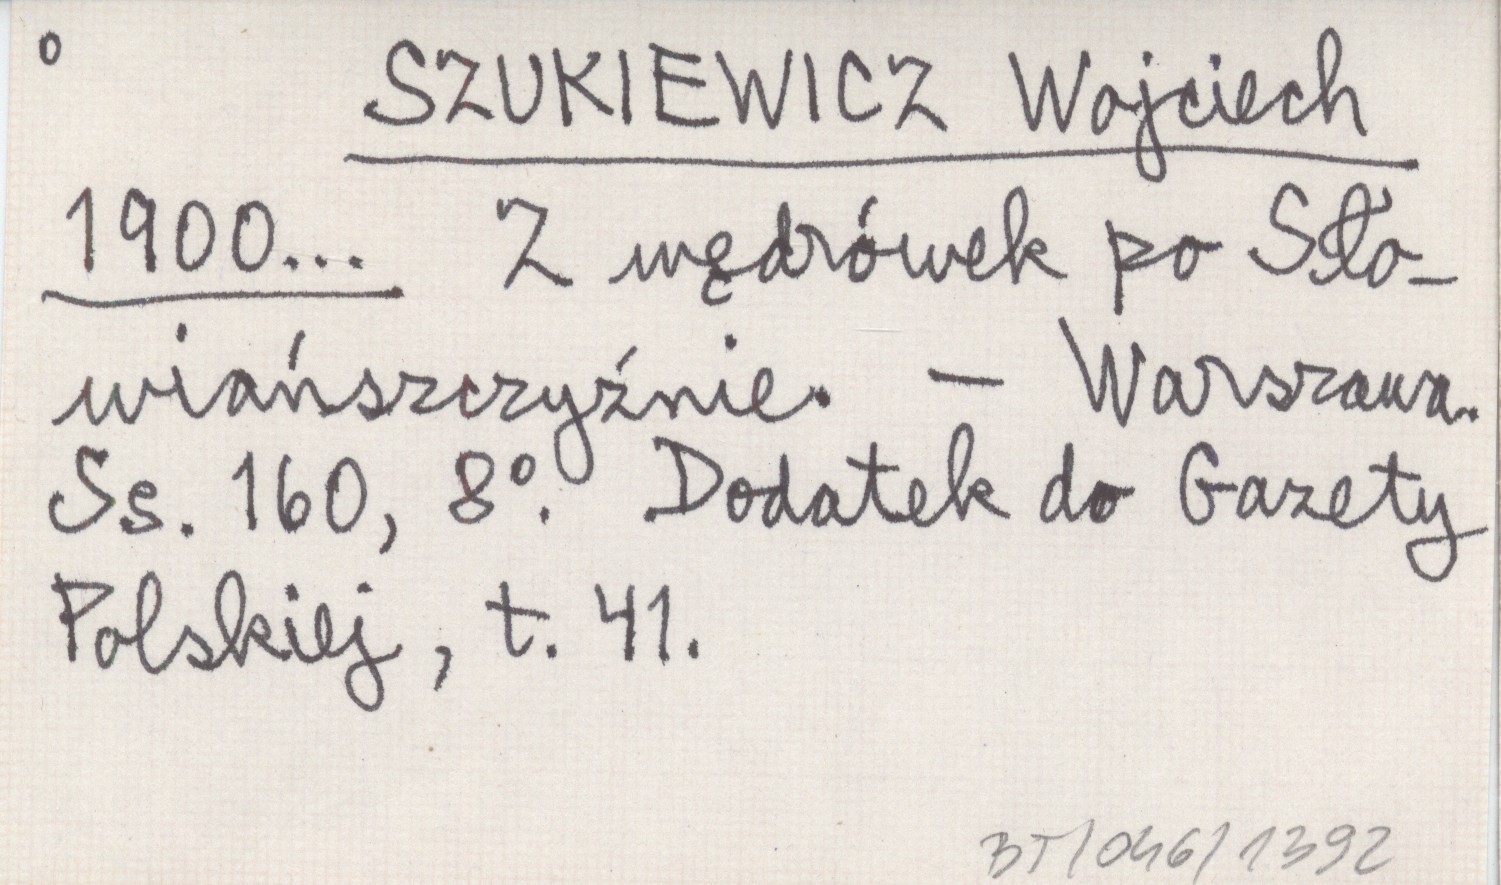 o SZUKIEWICZ Wojciech
1900... Z wędrówek po Sło-
wiańszczyźnie. — Warszawa.
Ss. 160, 8°. Dodatek do Gazety
Polskiej, t. 41.
BT/046/1392